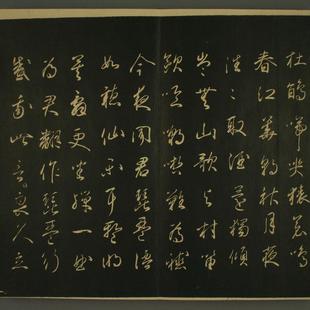 杜鵑啼哭猿哀鳴
春江花朝秋月夜
往〻取酒還獨傾
豈無山歌與村笛
歐啞嘲哳難為聽
今夜聞君琵琶語
如聽仙樂耳暫明
莫辭更坐彈一曲
為君翻作琵琶行
感我此言良久立